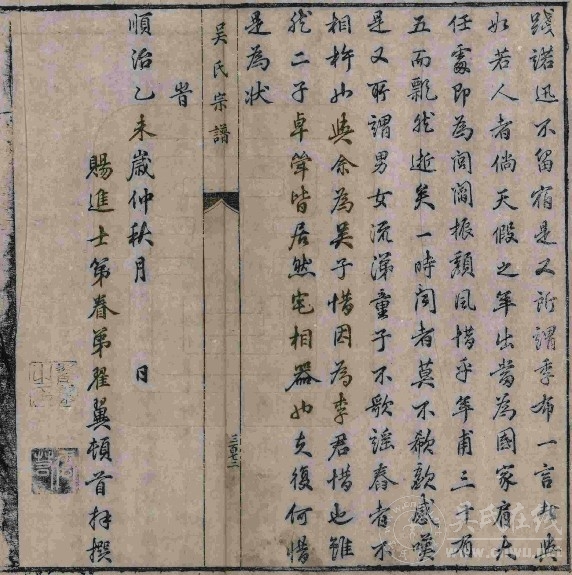 踐諾迅不留宿是又所謂季布一言者與
如若人者倘天假之年出當為國家肩大
任處即為閭閻振頹風惜乎年甫三十有
五而飄然逝矣一時聞者莫不欷歔感嘆
是又所謂男女流涕童子不歌謡舂者不
相杵也與余為吳子惜因為李君惜也雖
然二子卓犖皆居然宅相器也夫復何惜
是為狀
吳氏宗譜
旹
順治乙未歲仲秋月 日
賜進士第眷弟翟翼頓首拜撰
吴氏在线